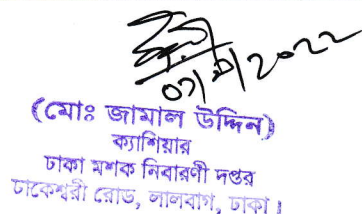 (মোঃ জামাল উদ্দিন)
ক্যাশিয়ার
ঢাকা মশক নিবারণী দপ্তর
ঢাকেশ্বরী রোড, লালবাগ, ঢাকা।